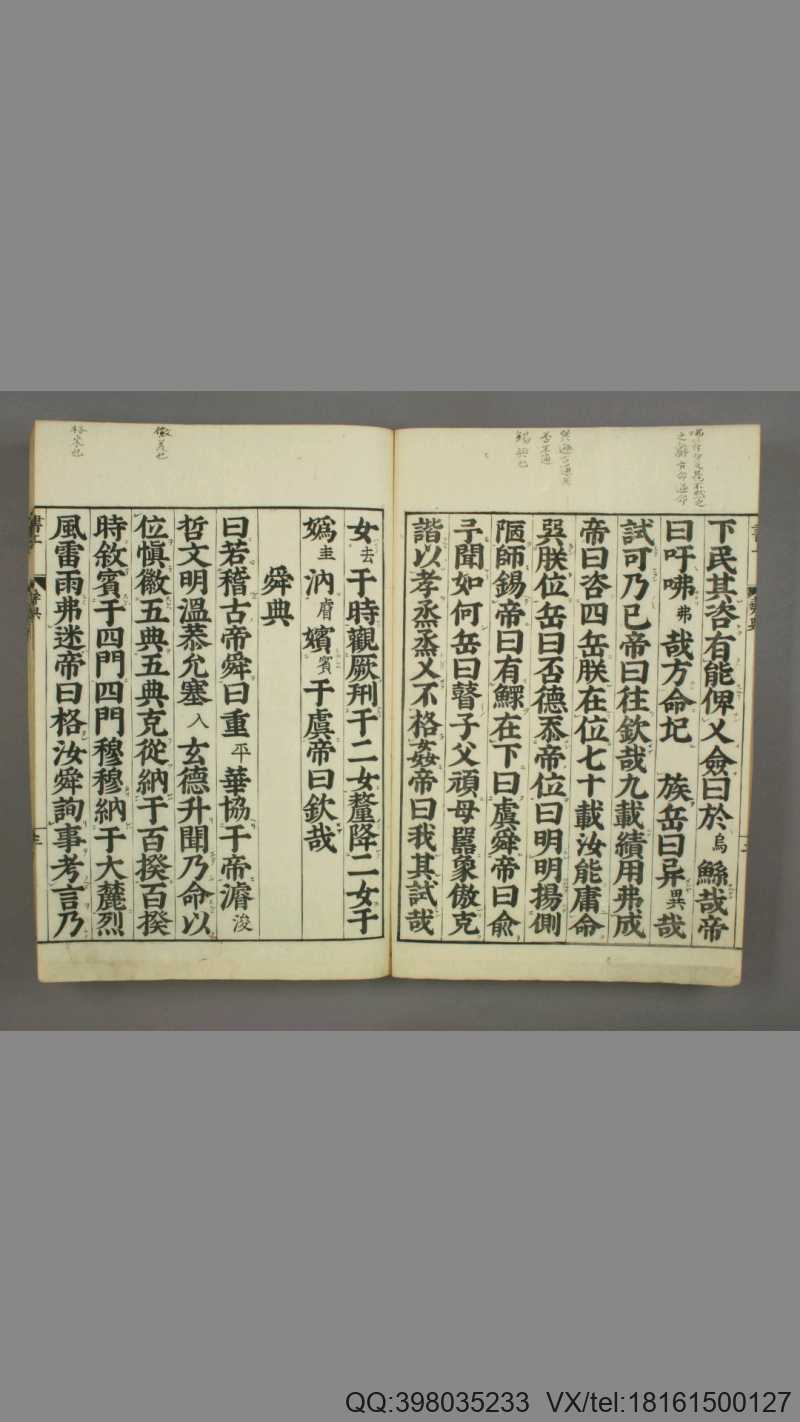 下民其咨有能俾乂僉曰於烏鯀哉帝
曰吁咈弗哉方命圮族岳曰异異哉
試可乃已帝曰往欽哉九載績用弗成
帝曰咨四岳朕在位七十載汝能庸命
巽朕位岳曰否德忝帝位曰明明揚側
陋師錫帝曰有鰥在下曰虞舜帝曰俞
予聞如何岳曰瞽子父頑母嚚象傲克
諧以孝烝烝乂不格姦帝曰我其試哉
女去于時觀厥刑于二女釐降二女于
嬀圭汭膚嬪賓于虞帝曰欽哉
舜典
曰若稽古帝舜曰重平華協于帝濬浚
哲文明溫恭允塞入玄德升聞乃命以
位愼徽五典五典克從納于百揆百揆
時敘賓于四門四門穆穆納于大麓烈
風雷雨弗迷帝曰格汝舜詢事考言乃
徽美也
格來也
QQ:398035233 VX/tel:18161500127